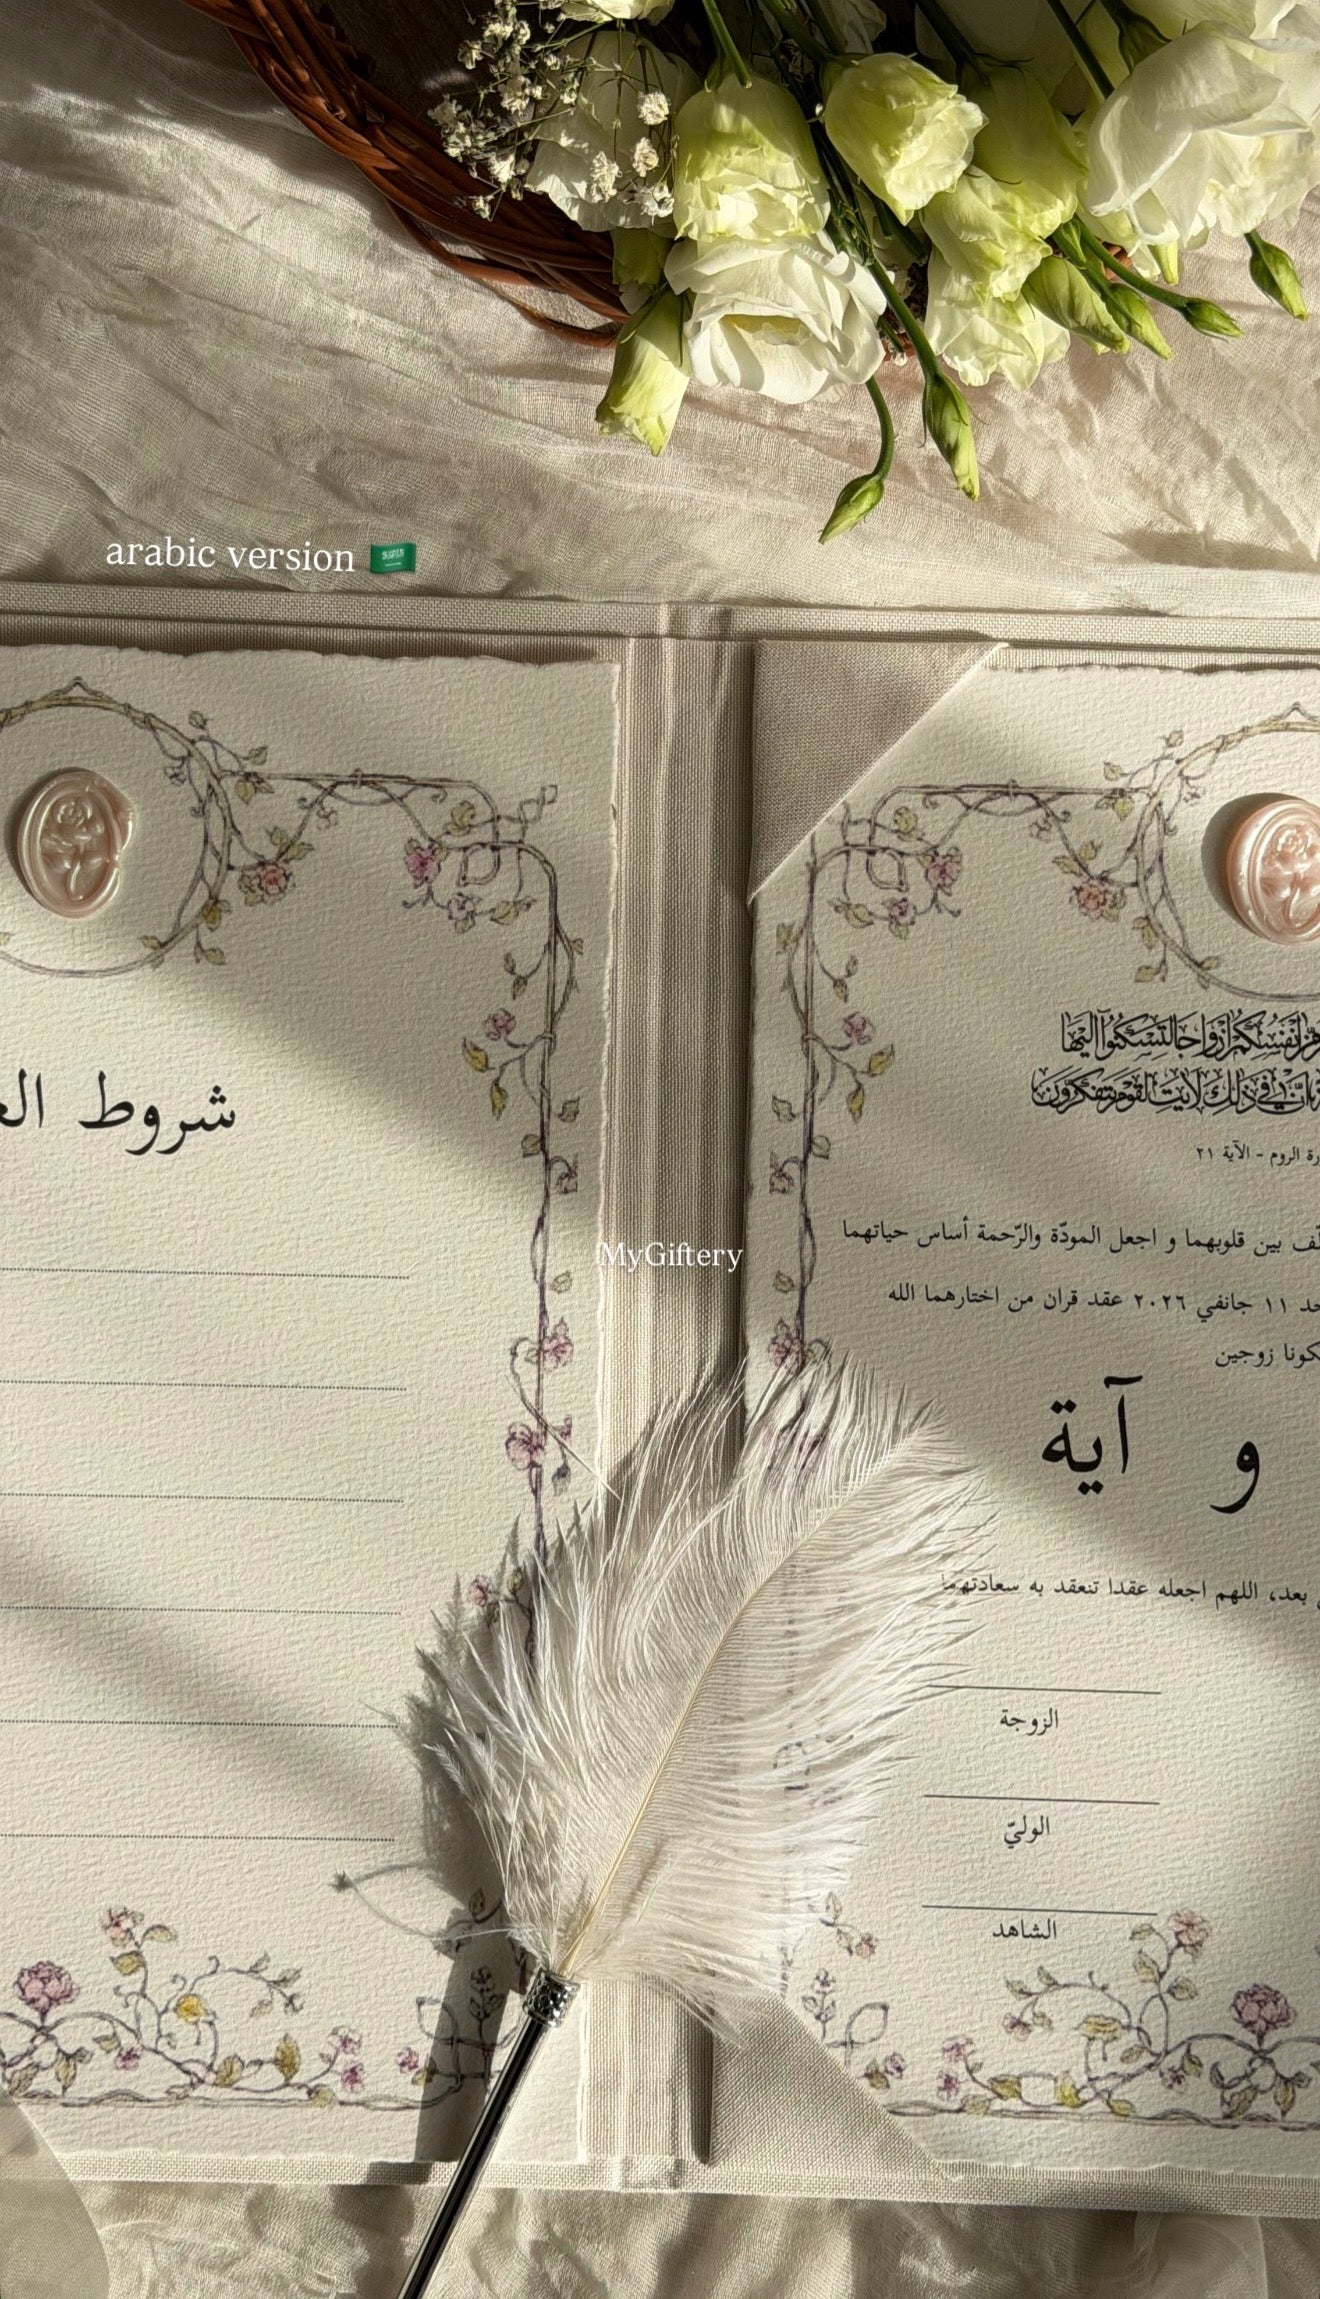 arabic version
شروط
أنفسكم أزواجا لتسكنوا إليها
إن في ذلك لآيات لقوم يتفكرون
الروم - الآية ٢١
بين قلوبهما و اجعل المودّة والرّحمة أساس حياتهما
١١ جانفي ٢٠٢٦ عقد قران من اختارهما الله
زوجين
و آية
بعد، اللهم اجعله عقدا تنعقد به سعادتهما
الزوجة
الوليّ
الشاهد
MyGiftery